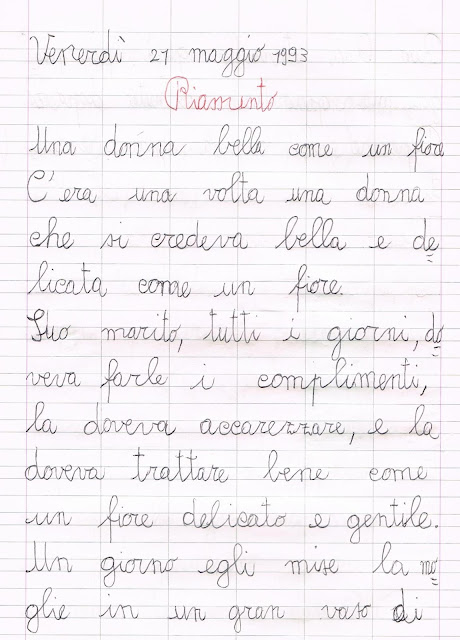 Venerdì 21 maggio 1993
Riamento
Una donna bella come un fiore
C'era una volta una donna
che si credeva bella e de
licata come un fiore.
Suo marito, tutti i giorni, do
veva farle i complimenti,
la doveva accarezzare, e la
doveva trattare bene come
un fiore delicato e gentile.
Un giorno egli mise la mo
glie in un gran vaso di